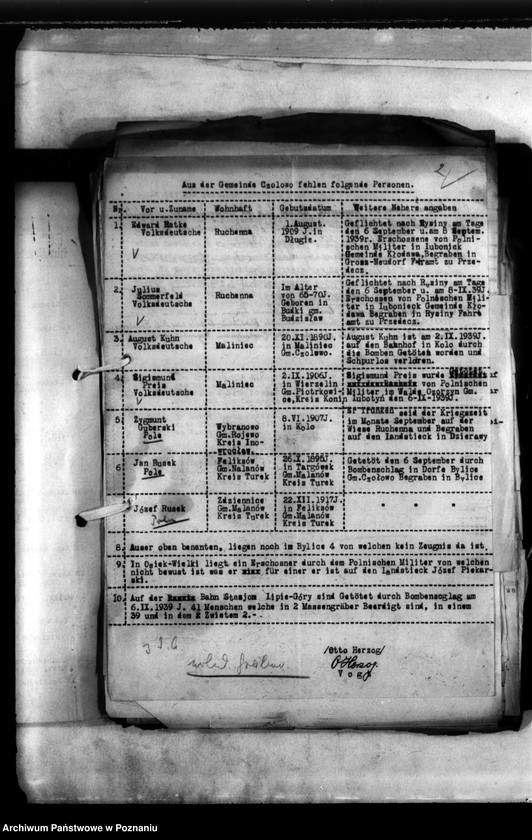 2
Aus der Gemeinde Czolowo fehlen folgende Personen.
Nr. Vor u.Zuname Wohnhaft Gebutsdatum Weitere Nähere angaben
1. Edward Hatke Volksdeutsche Ruchenna 1.August. 1909 J.in Długie.
Geflichtet nach Rysiny am Tage
den 6 September u.am 8 Septem.
1939r. Erschossene von Polni-
schen Militer in Lubonick
Gemeinde Kłodawa,Begraben in
Gross-Neudorf Pfaramt zu Prze-
decz.
2. Julius Sommerfeld Volksdeutsche Ruchenna Im Alter von 65-70J. Geboren in Budki gm. Budzisław
Geflichtet nach Rysiny am Tage
den 6 September u. am 8-IX.39J.
Erschossen von Polnäschen Mili-
ter in Lubonieck Gemeinde Kło-
dawa Begraben in Rysiny Fahra
amt zu Przedecz.
3. August Kuhn Volksdeutsche Maliniec 20.XI.1890J. in Maliniec Gm.Czolowo.
August Kuhn ist am 2.IX.1939J.
auf den Bahnhof in Kolo durch
die Bomben Getötet worden und
Schpurlos verloren.
4. Sigismund Preis Volksdeutsche Maliniec 2.IX.1906J. in Wierzelin Gm.Piotrkowice,Kreis Konin
Sigismund Preis wurde
von Polnischen
Militer im Walde Osorzyn Gm.
Lubotyn den 6-IX-1939J.
5. Zygmunt Guberski Pole Wybranowo Gm.Rojewo Kreis Ino- wrocław. 8.VI.1907J. in Kolo
seid der Kriegszeit
im Monate September auf der
Wiese Ruchenna und Begraben
auf den Landstieck in Dzierawy
6. Jan Rusek Pole Feliksów Gm.Malanów Kreis Turek 26.X.1896J. in Targówek Gm.Malanów Kreis Turek
Getötöt den 6 September durch
Bombenschlag in Dorfe Bylice
Gm.Czołowo Begraben in Bylice
Józef Rusek Pole Zdziennice Gm.Malanów Kreis Turek 22.XII.1917J. in Feliksów Gm.Malanów Kreis Turek " " "
8. Auser oben benanten, liegen noch im Bylice 4 von welchen kein Zeugnis da ist.
9. In Osiek-Wielki liegt ein Erschosner durch dem Polnischen Militer von welchen
nicht bewust ist was er für einer er ist auf den Landstieck Józef Piekar-
ski.
10. Auf der Bahn Stasjom Lipie-Góry sind Getötet durch Bombenschlag am
6.IX.1939 J. 41 Menschen welche in 2 Massengräber Beerdigt sind, in einem
39 und in dem 2 Zwietem 2.-
/Otto Herzog/
O Herzog.
V o g t
Archiwum Państwowe w Poznaniu
Archiwum Państwowe w Poznaniu